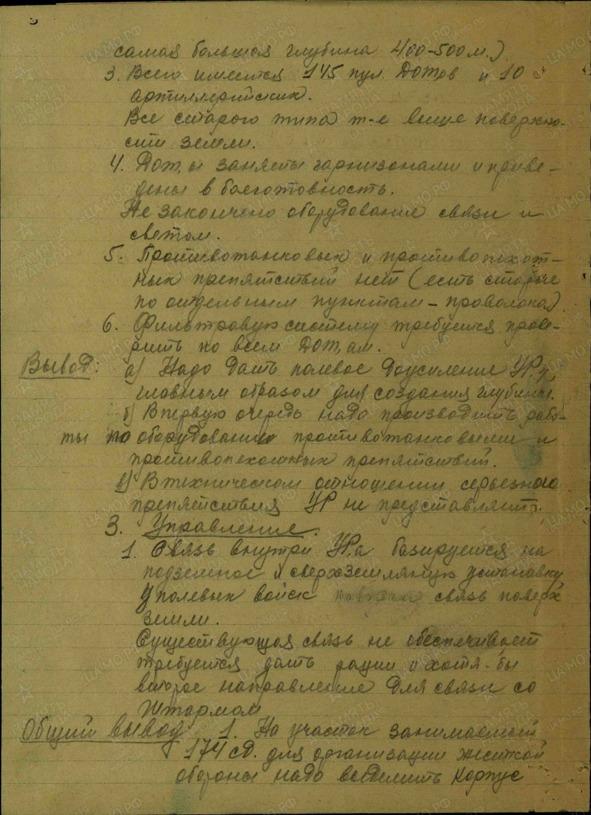 самая большая глубина 400-500 м.)
3. Всего имеется 145 пул. Дотов и 10
артиллерийских.
Все старого типа т-е выше поверхно-
сти земли.
4. Доты заняты гарнизонами и приве-
дены в боеготовность.
Не закончено оборудование связи и
светом.
5. Противотанковых и противопехот-
ных препятствий нет (есть старые
по отдельным пунктам - проволока).
6. Фильтровую систему требуется прове-
рить по всем Дотам.
Вывод: а) Надо дать полевое доусиление УРу,
главным образом для создания глубины.
б) В первую очередь надо производить рабо-
ты по оборудованию противотанковыми и
противопехотных препятствий.
в) В техническом отношении серьезного
препятствия УР не представляет.
3. Управление.
1. Связь внутри УРа базируется на
подземное и сверхземляную установку
У полевых войск связь поверх
земли.
Существующая связь не обеспечивает
требуется дать рации и хотя-бы
второе направление для связи со
Штармом
Общий вывод 1. На участок занимаемый
174 сд. для организации жесткой
обороны надо выделить Корпус